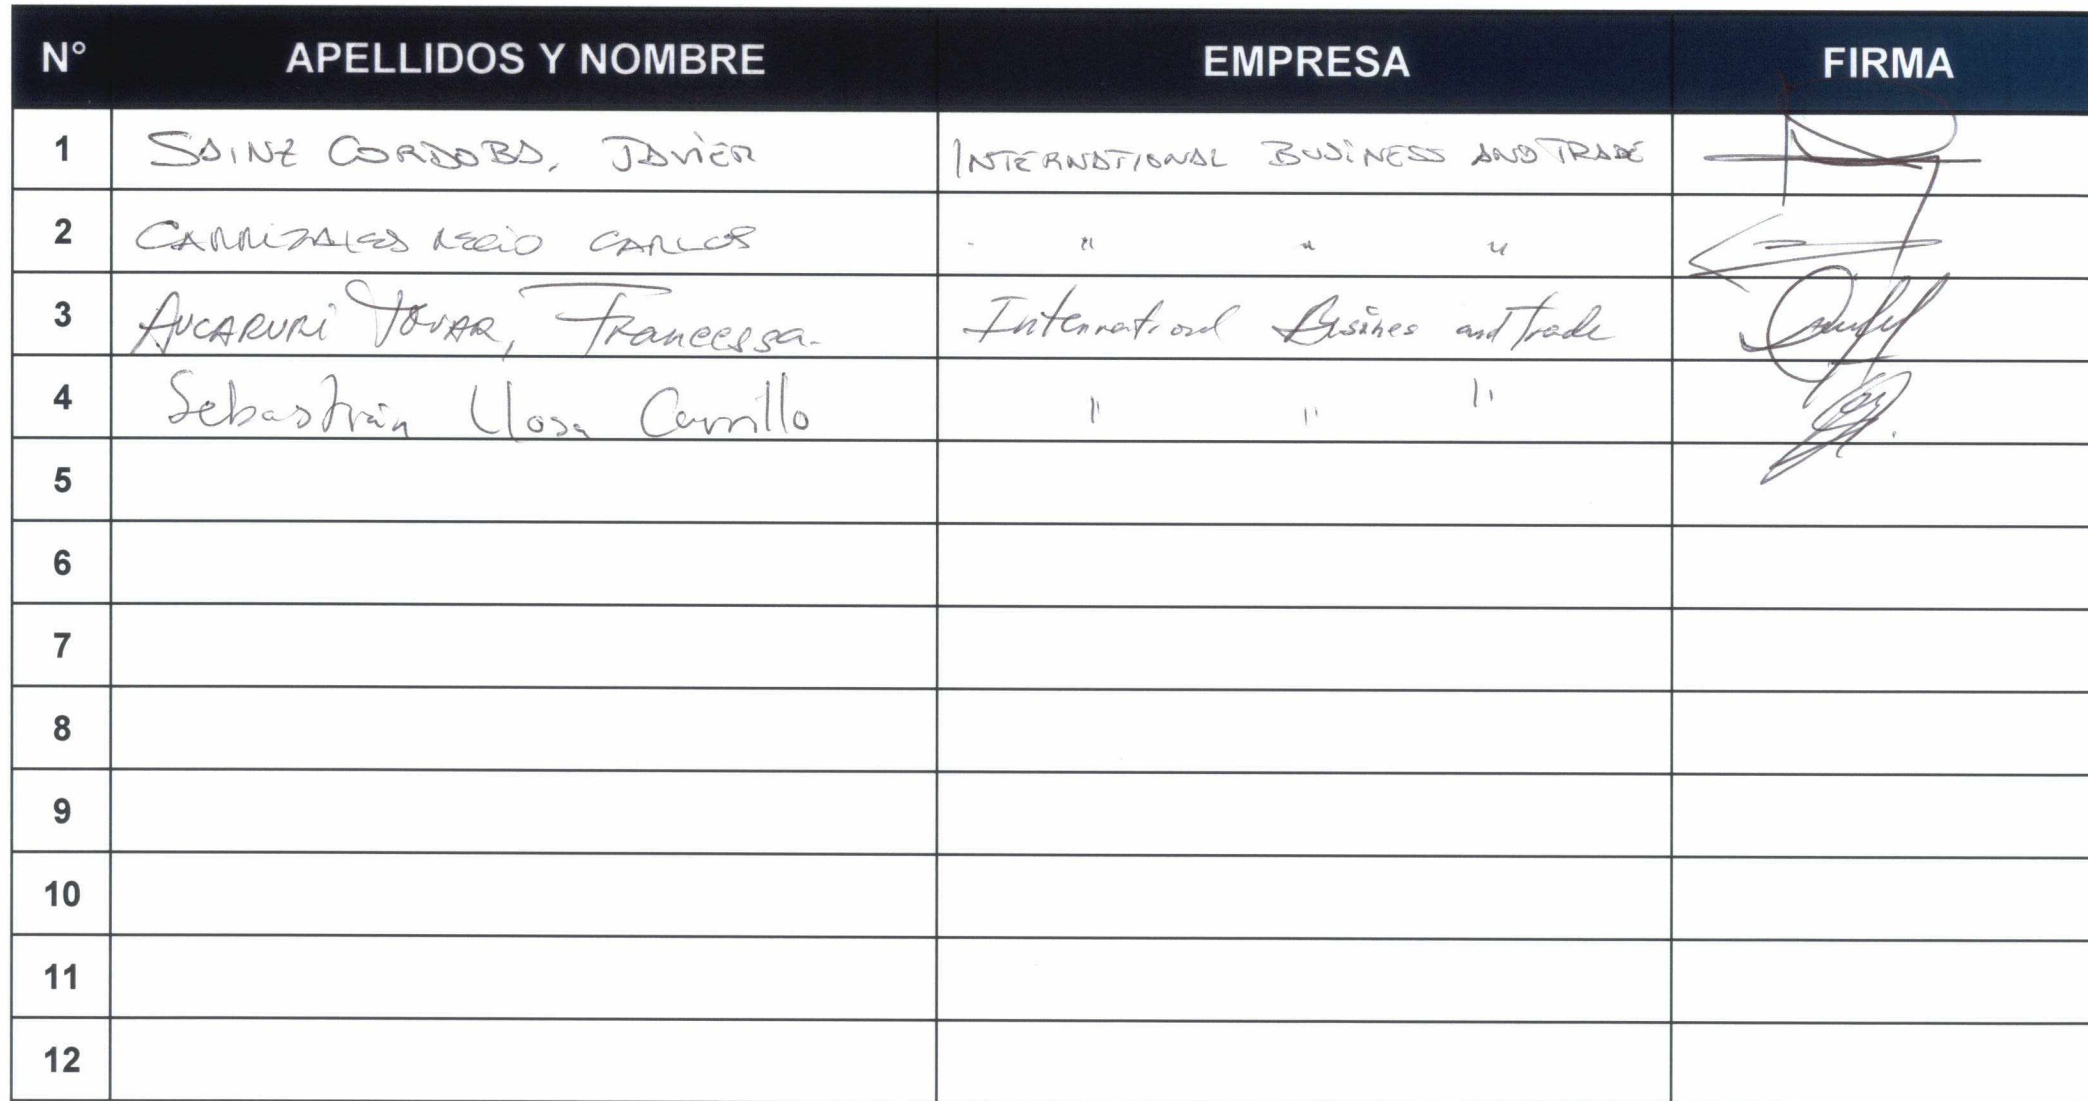 N° APELLIDOS Y NOMBRE EMPRESA FIRMA
1 SAINZ CORDOBA, JAVIER INTERNATIONAL BUSINESS AND TRADE
2 CARRIZALES RECIO CARLOS " " "
3 AUCARURI TOVAR, Francessa. International Busines and Trade
4 Sebastián Llosa Carrillo " " "
5
6
7
8
9
10
11
12